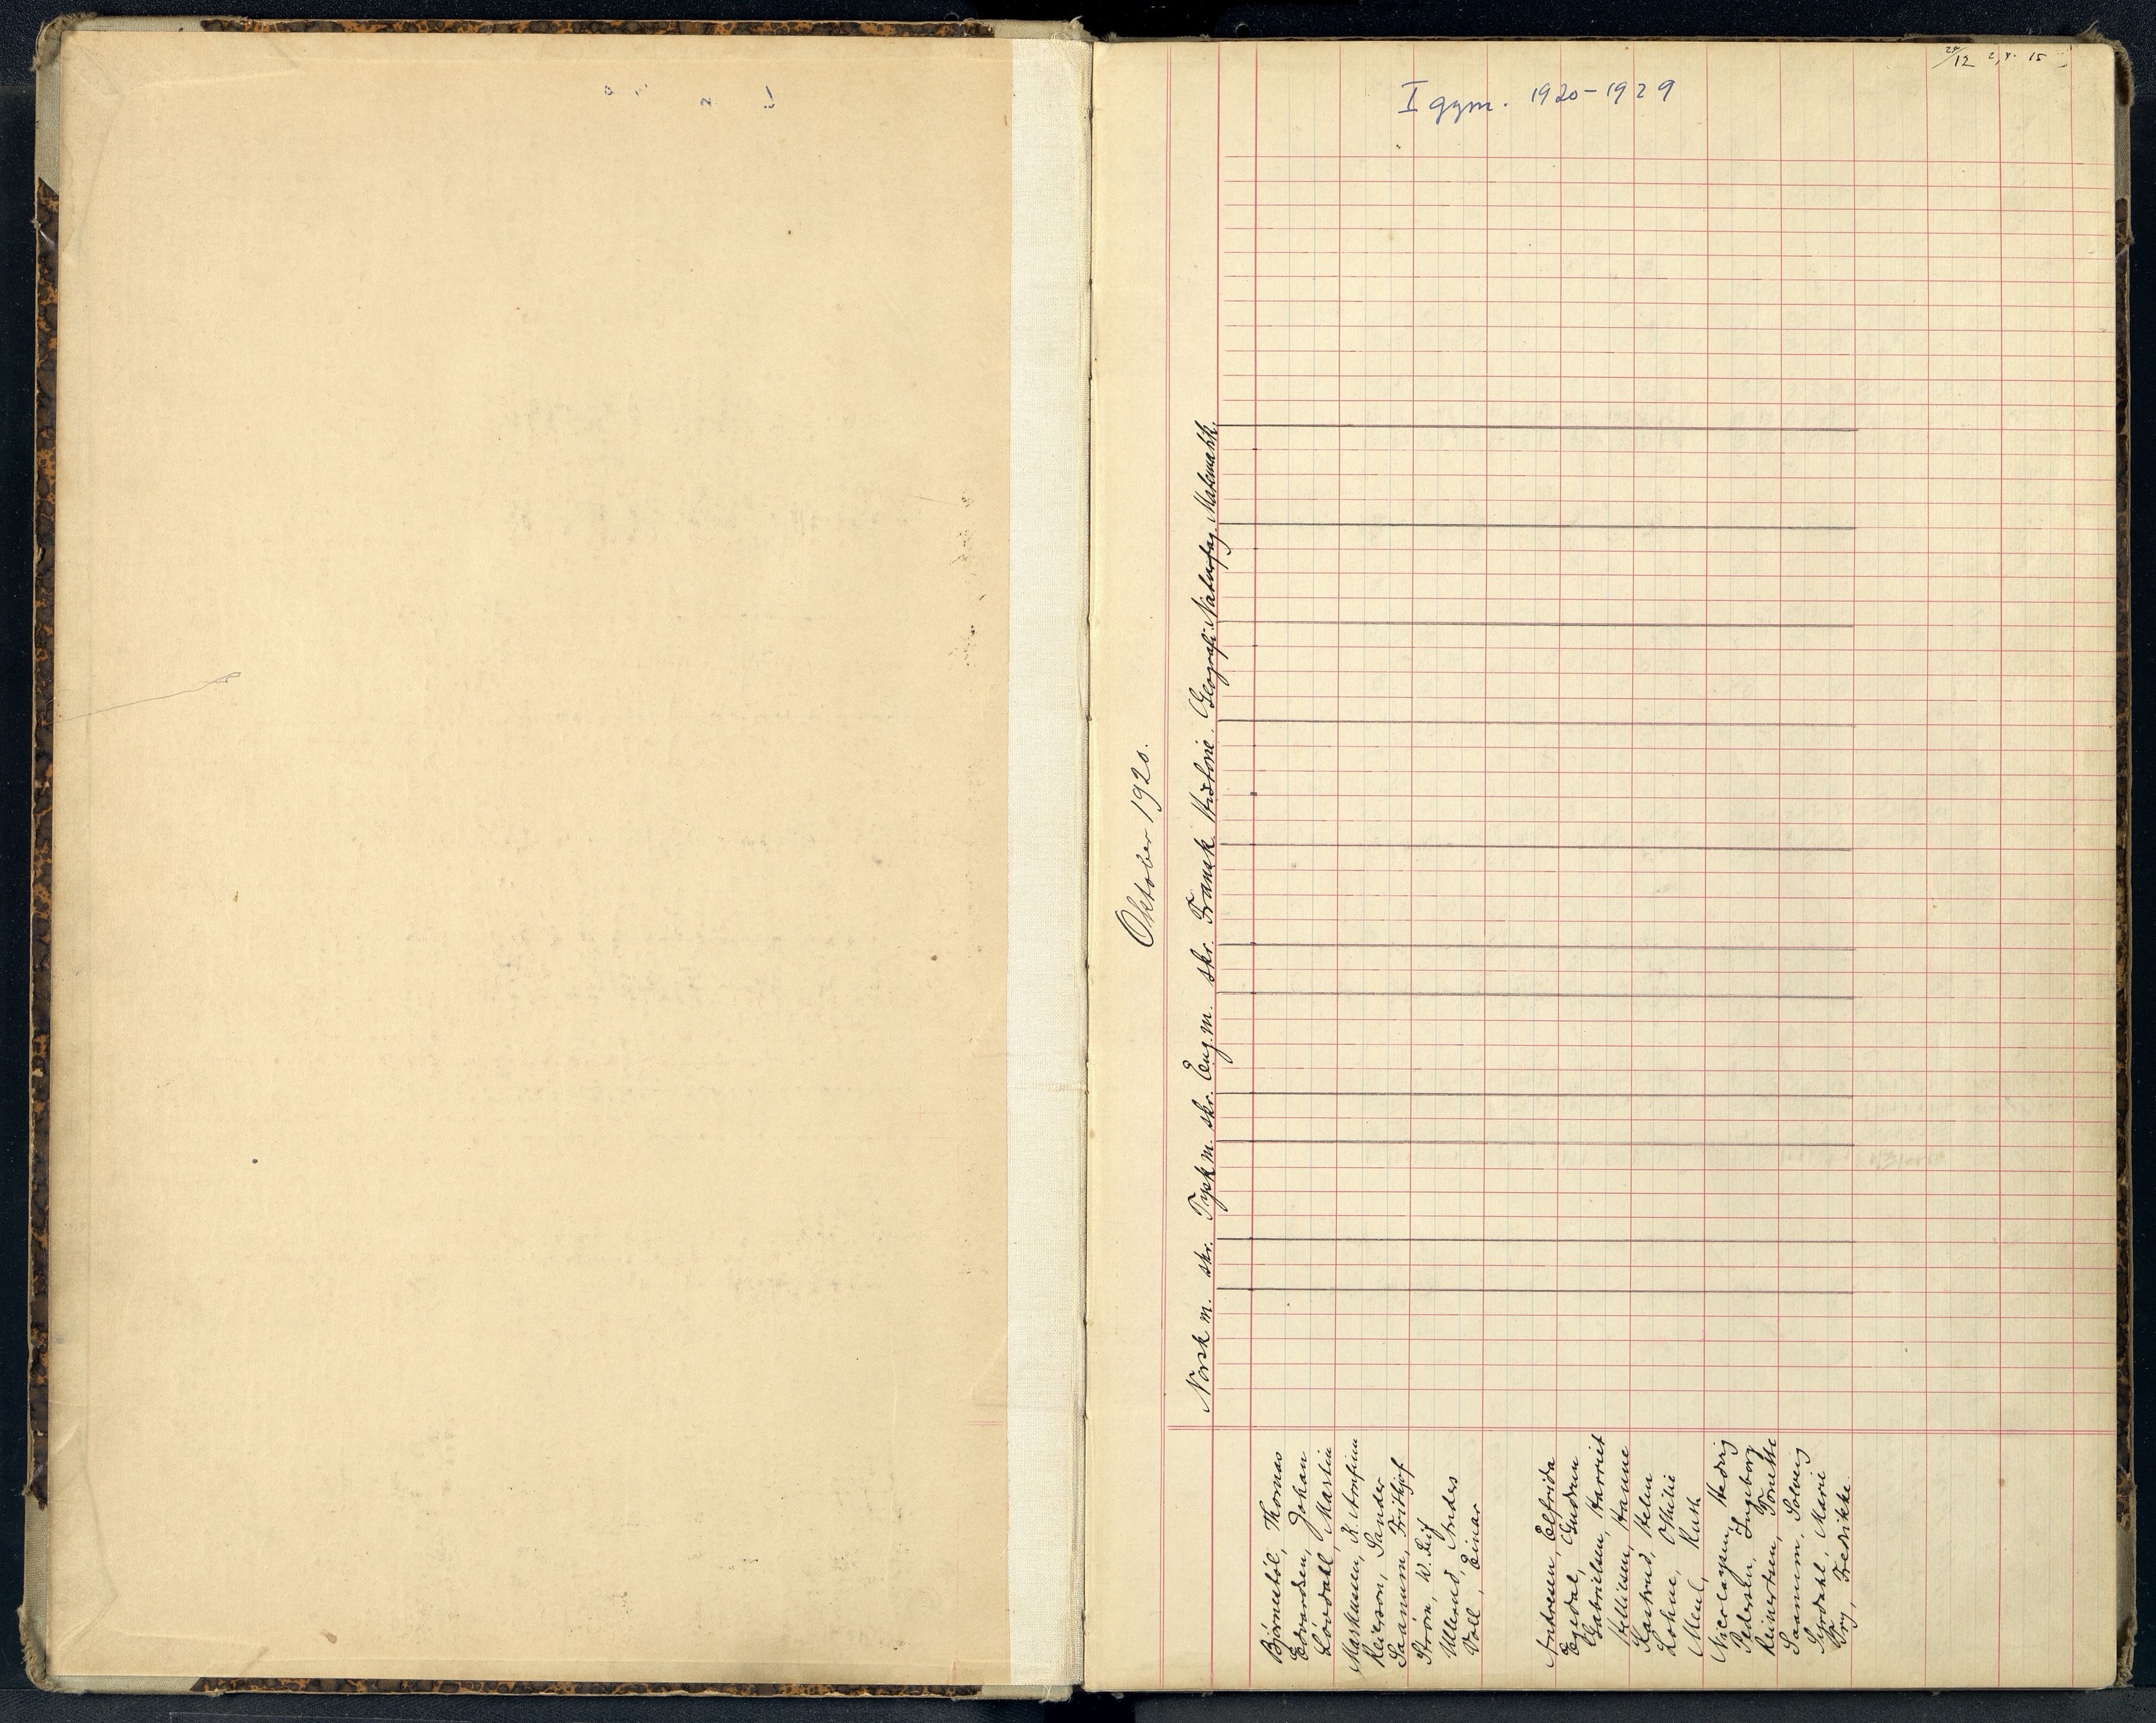 I gym. 1920-1929
Oktober 1920.
Norsk m. skr. Tysk m. skr. Eng. m. skr. Fransk. Historie. Geografi. Naturfag. Matematikk.
Bjørnestøl, Thomas
Edvardsen, Johan
Løvdahl, Martin
Markussen, K. Arnfinn
Reierson, Sander
Saanum, Fridthjof
Strøm, W. Leif
Ullerud, Anders
Voll, Einar
Andresen, Elfrida
Egedal, Gudrun
Gabrielsen, Harriet
Hellisen, Hanne
Kastrud, Helen
Lohne, Othilie
Meel, Ruth
Nicolaysen, Hedvig
Pedersen, Ingeborg
Reinertsen, Tonette
Saanum, Solveig
Syrdahl, Marie
Try, Fredrikke